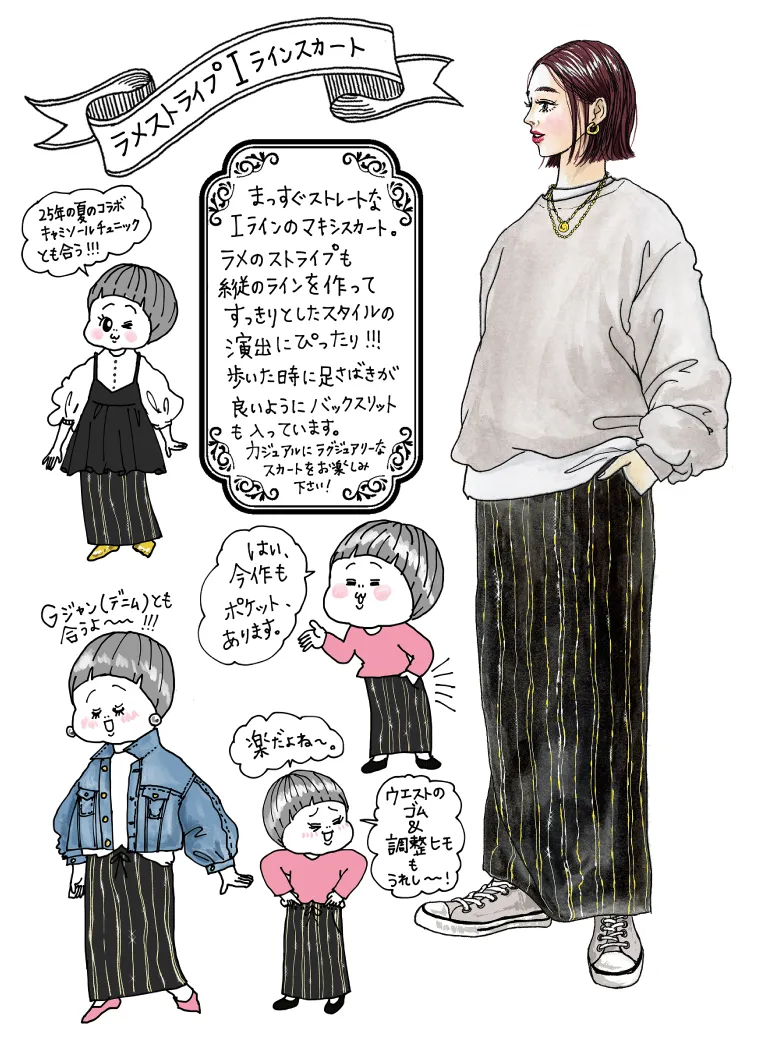 ラメストライプIラインスカート
25年の夏のコラボ
キャミソールチュニック
とも合う!!!
まっすぐストレートな
Iラインのマキシスカート。
ラメのストライプも
縦のラインを作って
すっきりとしたスタイルの
演出にぴったり!!!
歩いた時に足さばきが
良いようにバックスリット
も入っています。
カジュアルにラグジュアリーな
スカートをお楽しみ
下さい!
はい、
今作も
ポケット、
あります。
Gジャン(デニム)とも
合うよ〜〜!!!
楽だよね〜。
ウエストの
ゴム
&
調整ヒモ
も
うれし〜〜!